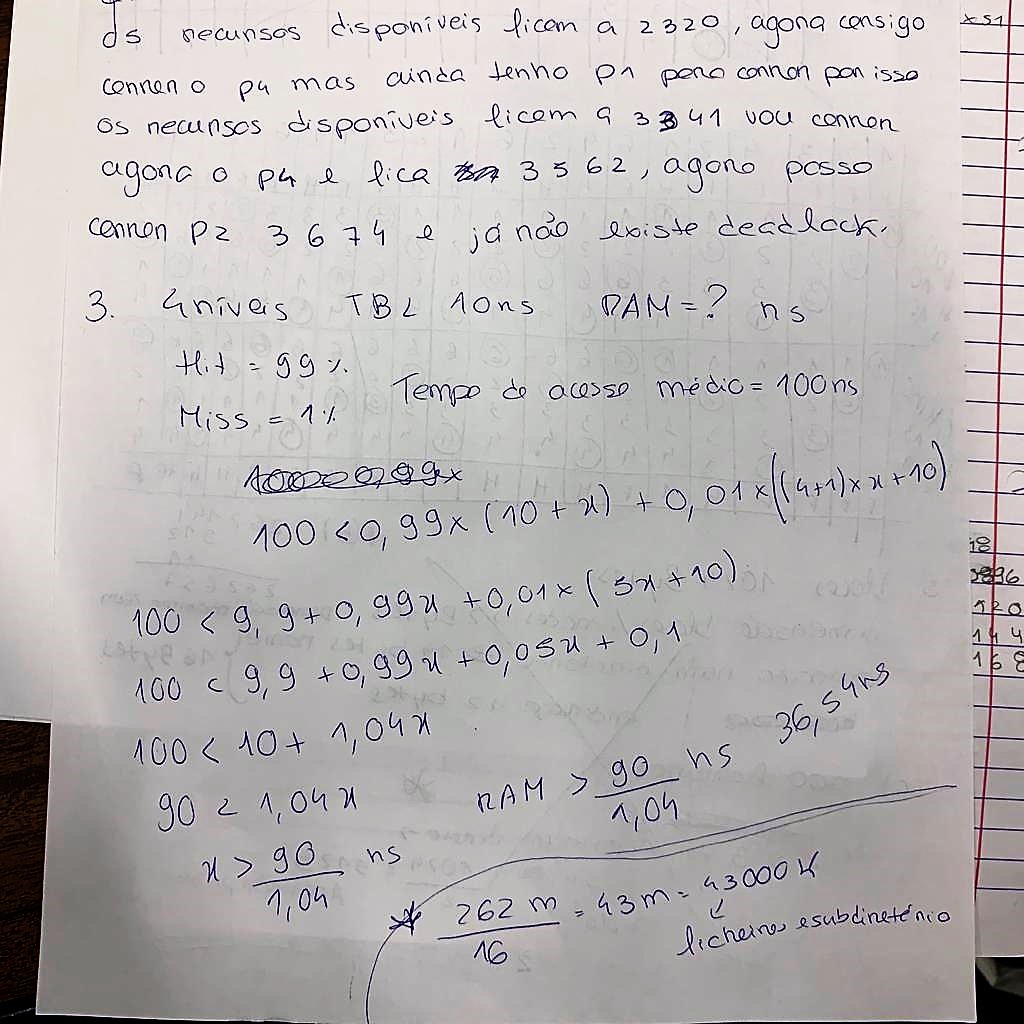 Os recursos disponíveis ficam a 2320, agora consigo
correr o p4 mas ainda tenho p1 para correr por isso
os recursos disponíveis ficam a 3341 vou correr
agora o p4 e fica 3562, agora posso
correr p2 3674 e já não existe deadlock.
3. 4 níveis TBL 10ns RAM = ? ns
Hit = 99%
Tempo de acesso médio = 100ns
Miss = 1%
100 < 0,99 x (10 + x) + 0,01 x ((4+1) x x + 10)
100 < 9,9 + 0,99x + 0,01 x (5x + 10)
100 < 9,9 + 0,99x + 0,05x + 0,1
100 < 10 + 1,04x
90 < 1,04x
RAM > 90/1,04 ns 36,54ns
x > 90/1,04 ns
* 262m/16 = 43m = 43000K
ficheiros e subdiretório
x51
18
3896
120
144
168